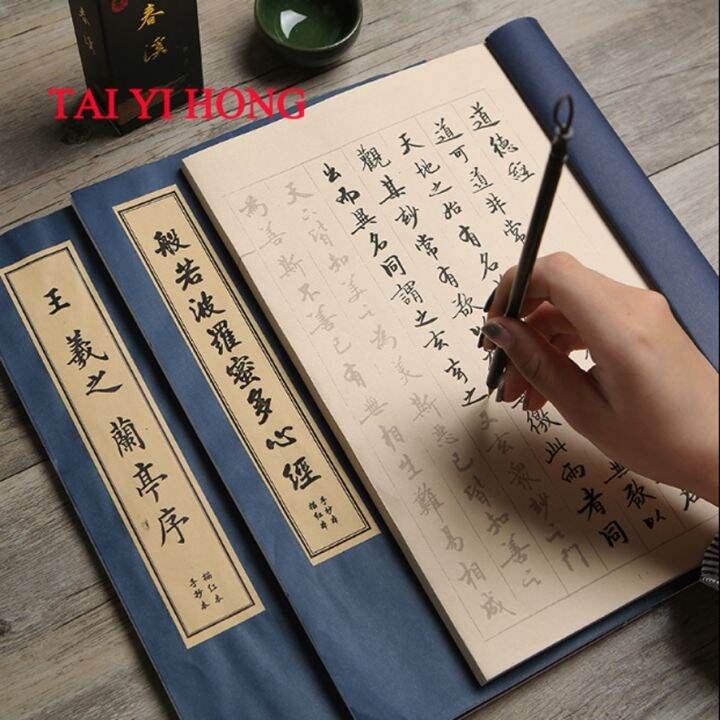 春溪
TAI YI HONG
道德經
道可道非常
天地之始有名
無欲以
觀其妙常有欲以
徼此兩者同
出而異名同謂之玄玄之又玄眾妙之門
天下皆知美之為美斯惡已皆知善之
為善斯不善已有無相生難易相成
般若波羅蜜多心經
手抄本
描红本
王羲之 蘭亭序
描红本
手抄本